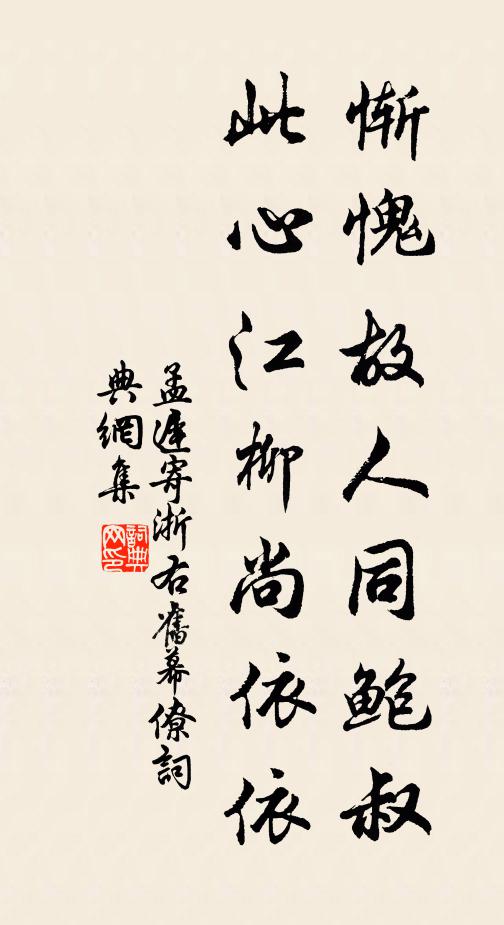 惭愧故人同鲍叔
此心江柳尚依依
孟遲寄浙右舊幕僚詞
典網集
詞典
网印